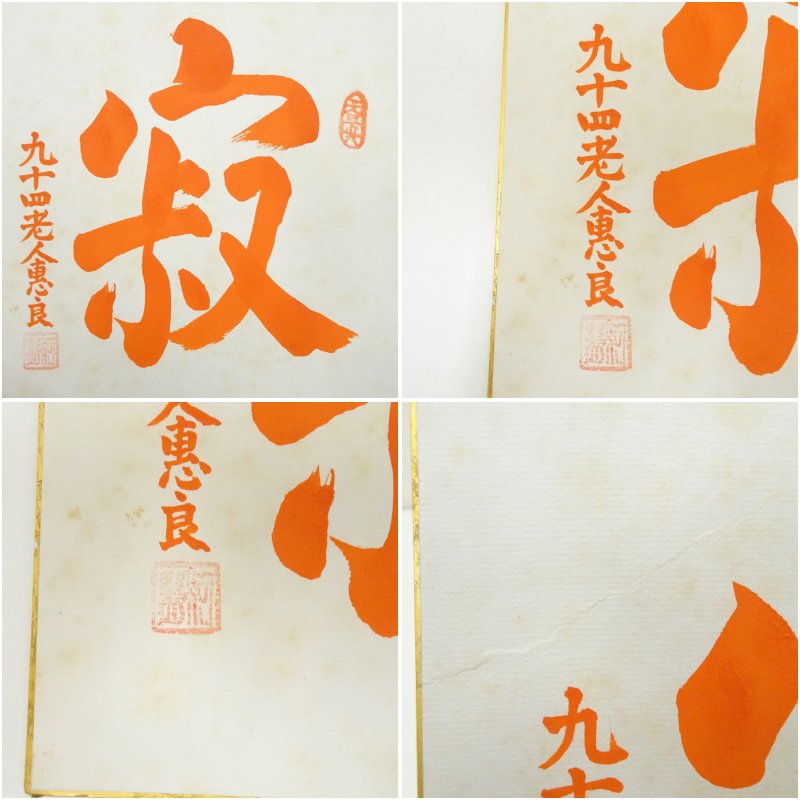 寂
九十四老人惠良
九十四老人惠良
人惠良
九十